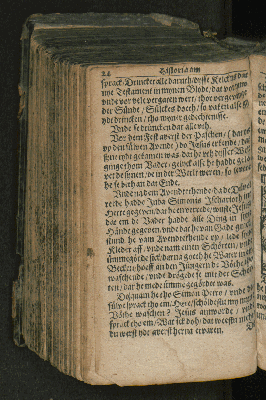 24 Historia am
sprack: Drincket alle daruth, disse Kelck ys dat
nye Testament in mynem Blode, dat vor
unde vor vele vergaten wert, thor vergevinge
der Sünde, Sülckes doeth, so vaken alse
ydt drincken, tho myner gedechtenisse.
Unde se drüncken dar alle uth.
Vor dem Fest averst der Paschen, dat
up den sülven Avende, do Jesus erkende, dat
syne tydt gekamen was, dat he uth disser Welt
ginge thom Vader, gelyck alse he hadde ge
vet de synen, de in der Werlt weren, so
he se beth an dat Ende.
Unde na dem Aventetende, do de Düvel
rede hadde Juda Simonis Ischarioth int
Herte gegeven, dat he en vorrede, wuste Jesus
dat em de Vader hadde alle Dinck in syne
Hände gegeven, unde dat he van Gade
stundt he vam Aventetende up, lede syne
Kleder aff, unde nam einen Schörten, unde
ümmegörde sick, darna goet he Water int
Becken, hoeff an den Jüngern de Vöthe tho
waschende, unde drögede se mit der Schör
ten, dar he mede ümme gegördet was.
Do quam he tho Simon Petro, unde de
sülve sprack tho em, Here, scholdestu my myne
Vöthe waschen? Jesus antworde, unde
sprack tho em, Wat ick doh, dat weestu nicht
du werst ydt averst herna ervaren.